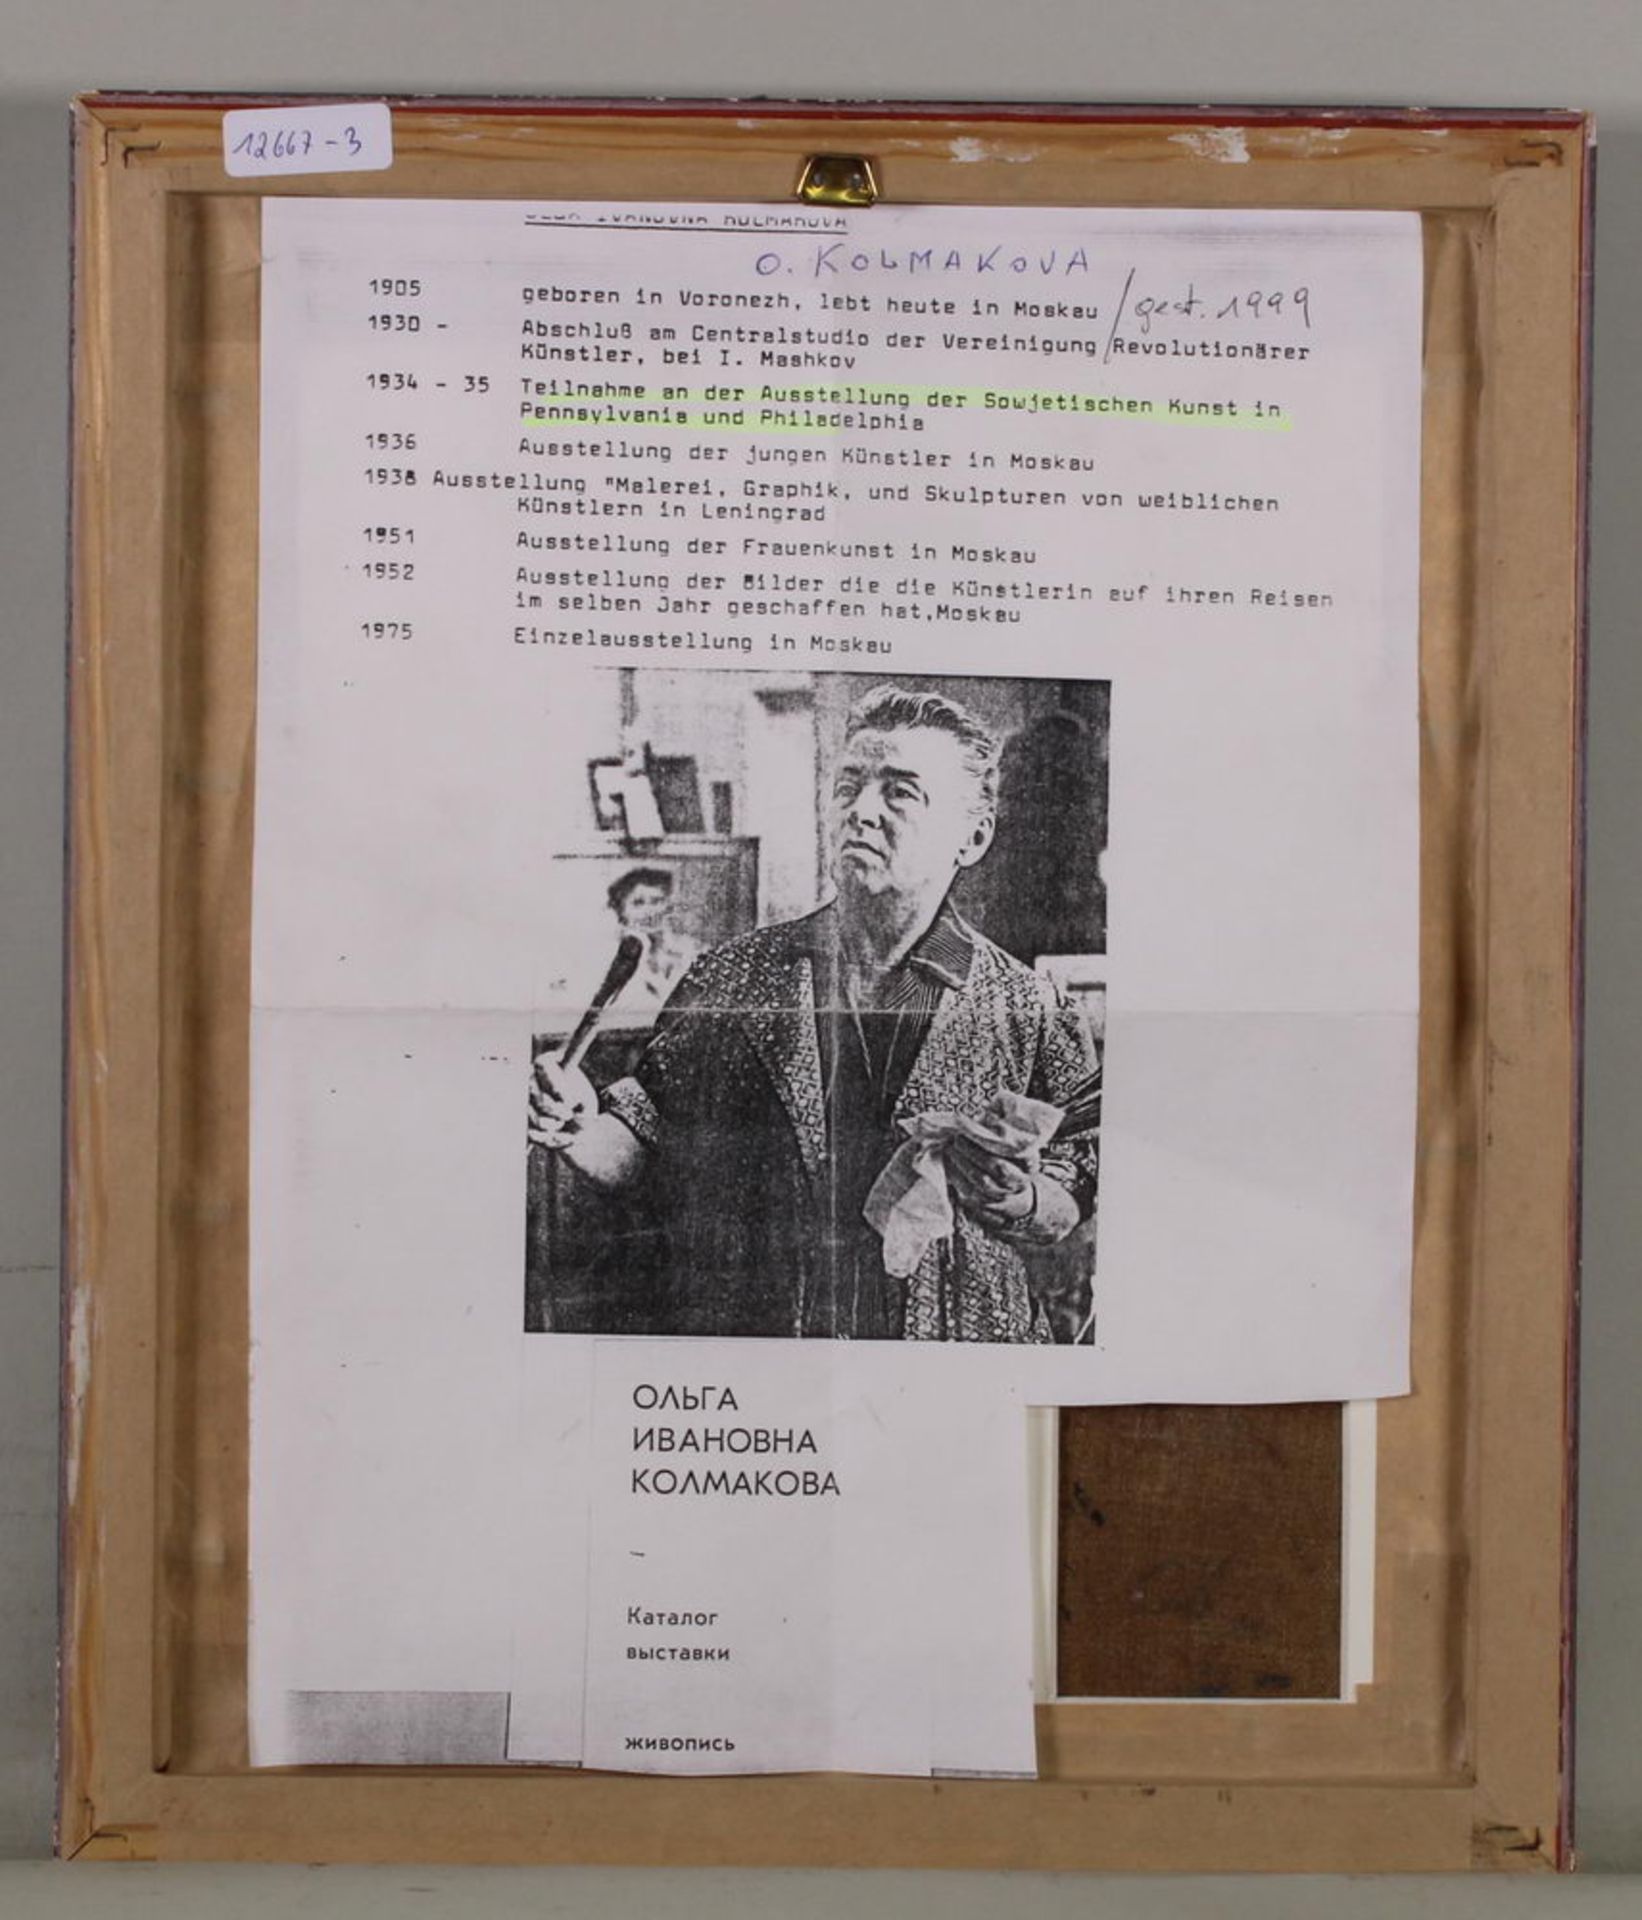 12667-3
OLGA IVANOVNA KOLMAKOVA
O. KOLMAKOVA
1905 geboren in Voronezh, lebt heute in Moskau / gest. 1999
1930 - Abschluß am Centralstudio der Vereinigung Revolutionärer
Künstler, bei I. Mashkov
1934 - 35 Teilnahme an der Ausstellung der Sowjetischen Kunst in
Pennsylvania und Philadelphia
1936 Ausstellung der jungen Künstler in Moskau
1938 Ausstellung "Malerei, Graphik, und Skulpturen von weiblichen
Künstlern in Leningrad
1951 Ausstellung der Frauenkunst in Moskau
1952 Ausstellung der Bilder die die Künstlerin auf ihren Reisen
im selben Jahr geschaffen hat,Moskau
1975 Einzelausstellung in Moskau
ОЛЬГА
ИВАНОВНА
КОЛМАКОВА
–
Каталог
выставки
живопись